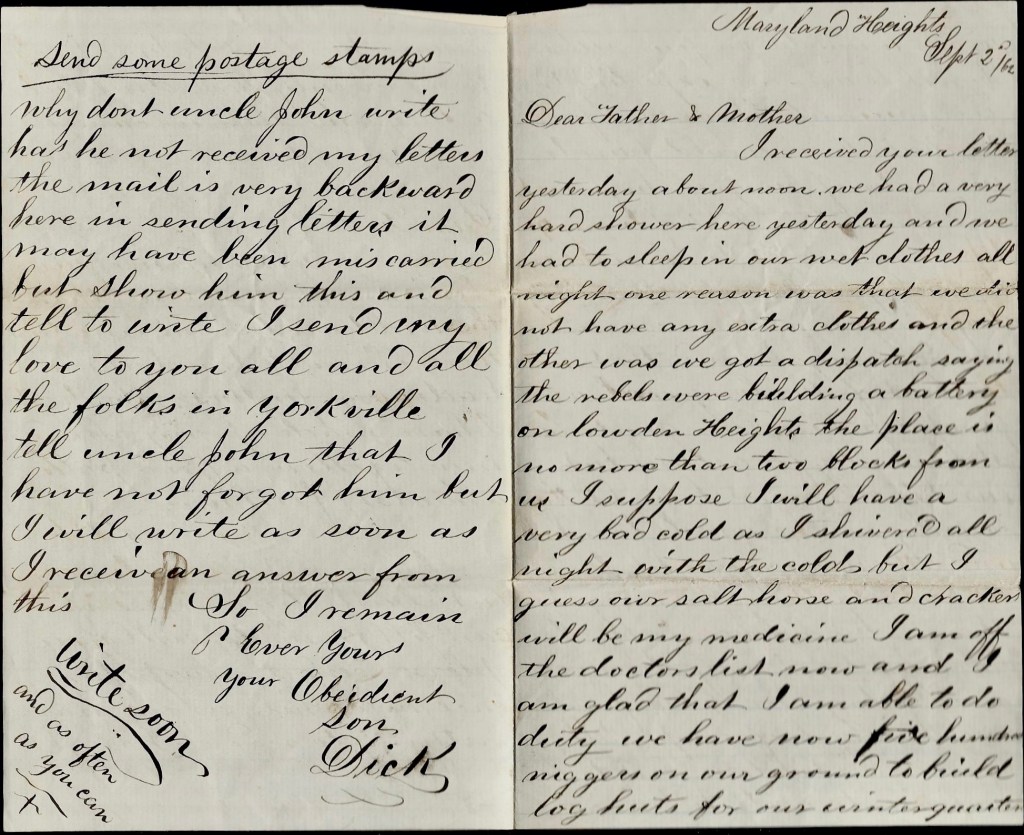 Maryland Heights
Sept 2d/62
Dear Father & Mother
I received your letter
yesterday about noon. we had a very
hard shower here yesterday and we
had to sleep in our wet clothes all
night one reason was that we did
not have any extra clothes and the
other was we got a dispatch saying
the rebels were building a battery
on lowden Heights the place is
no more than two blocks from
us I suppose I will have a
very bad cold as I shivered all
night with the cold but I
guess our salt horse and crackers
will be my medicine I am off
the doctors list now and I
am glad that I am able to do
duty we have now five hundred
niggers on our ground to build
log huts for our winterquarters
send some postage stamps
why dont uncle John write
has he not received my letters
the mail is very backward
here in sending letters it
may have been miscarried
but show him this and
tell to write I send my
love to you all and all
the folks in Yorkville
tell uncle John that I
have not forgot him but
I will write as soon as
I receiv an answer from
this So I remain
Ever Yours
your Obeidient
son
Dick
write soon
and as often
as you can